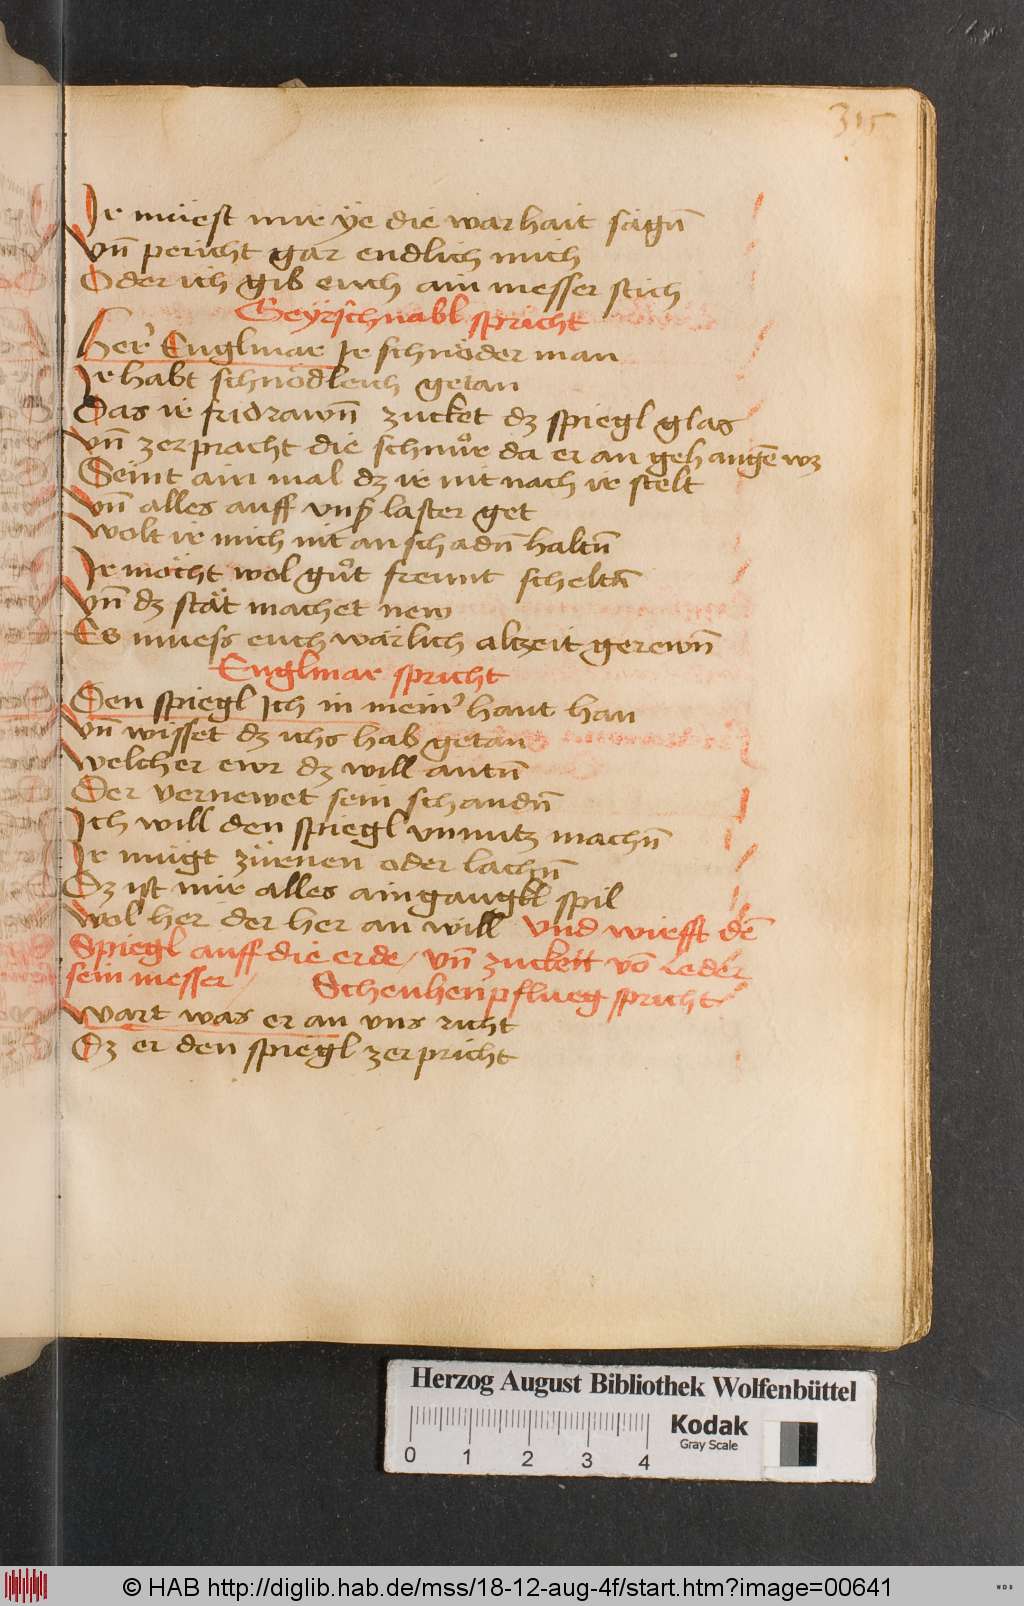 315
Ir müest mir ye die warhait sagn̄
vn̄ pericht gar endlich mich
Oder ich gib euch ain messer stich
Geyrschnabl spricht
Her' Englmar Ir schnöder man
Ir habt schnödleich getan
Das ir fridrawn̄ zucket dz spiegl glas
vn̄ zerpracht die schnůr da er an gehangē wz
Seint ain mal dz ir nit nach ir stelt
vn̄ alles auff laster get
wolt ir mich nit an schadn̄ haltn̄
Ir möcht wol gůt freunt scheltn̄
vn̄ dz stät machet new
Es muess euch wärlich alzeit gerewn̄
Englmar spricht
Den spiegl Ich in mein' hant han
vn̄ wisset dz ichs hab getan
welcher ewr dz will antn̄
Der vernewet sein schandn̄
Ich will den spiegl vnnutz machn̄
Ir mügt zürnen oder lachn̄
Dz ist mir alles ain gaugkl spil
wol her der her an will vnd wirfft dē
Spiegl auff die erde / vn̄ zuckett vō leder
sein messer / Schenhenpflueg spricht
wart was er an vns richt
Dz er den spiegl zerpricht
Herzog August Bibliothek Wolfenbüttel
Kodak
Gray Scale
0 1 2 3 4
© HAB http://diglib.hab.de/mss/18-12-aug-4f/start.htm?image=00641